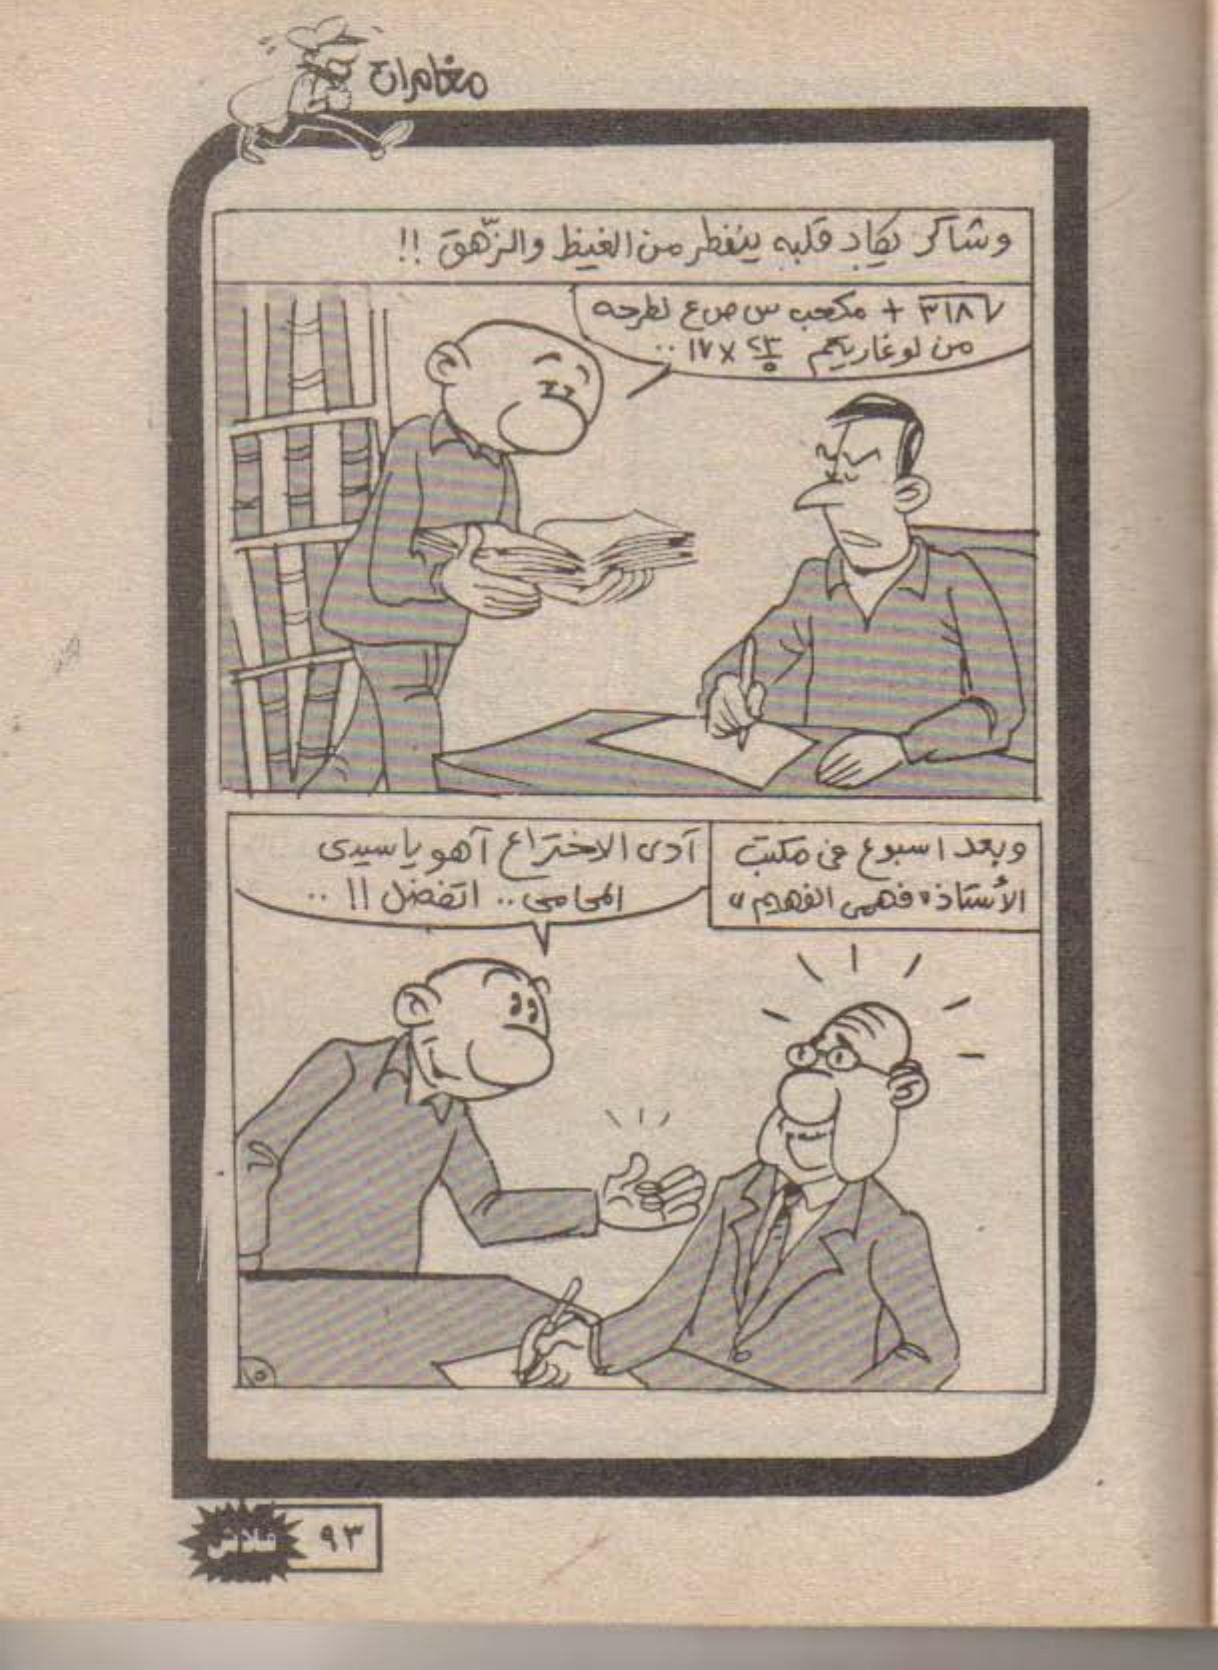 مغامرات
وشاكر يكاد قلبه ينفطر من الغيظ والزّهق !!
√٣١٨٦ + مكعب س ص ع نطرحه
من لوغاريتم ١٧ x ..
وبعد اسبوع فى مكتب
الأستاذ "فهمى الفهيم"
آدى الاختراع آهو يا سيدى
المحامى .. اتفضل !! ..
٩٣
فلاش